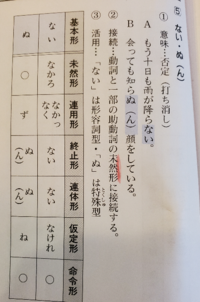 ⑤ ない・ぬ（ん）
① 意味…否定（打ち消し）
A もう十日も雨が降らない。
B 会っても知らぬ（ん）顔をしている。
② 接続…動詞と一部の助動詞の未然形に接続する。
③ 活用…「ない」は形容詞型・「ぬ」は特殊型
基本形 未然形 連用形 終止形 連体形 仮定形 命令形
ない なかろ なかっ なく ない ない なけれ ○
ぬ ○ ず ぬ（ん） ぬ（ん） ね ○